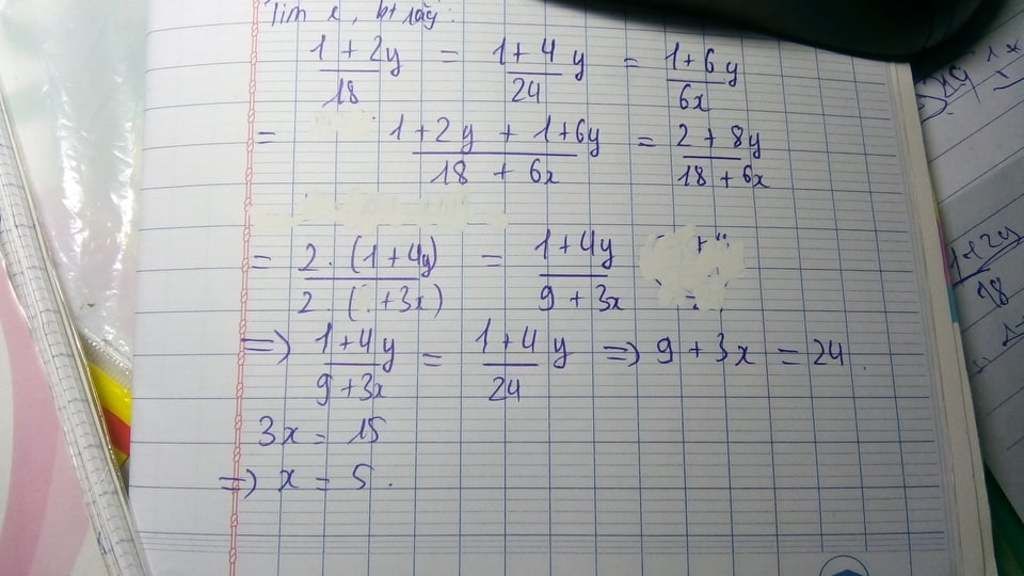 Tìm x, bt rằng:
1 + 2y / 18 = 1 + 4y / 24 = 1 + 6y / 6x
= 1 + 2y + 1 + 6y / 18 + 6x = 2 + 8y / 18 + 6x
= 2. (1 + 4y) / 2. ( + 3x) = 1 + 4y / 9 + 3x
=> 1 + 4y / 9 + 3x = 1 + 4y / 24 => 9 + 3x = 24.
3x = 15
=> x = 5.
1 + 2y
18